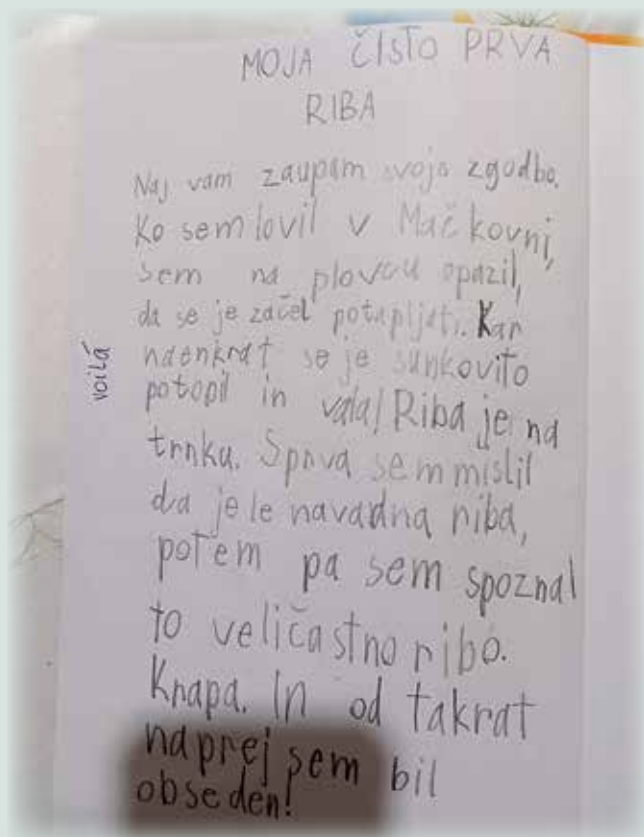 MOJA ČISTO PRVA
RIBA
Naj vam zaupam svojo zgodbo.
Ko sem lovil v Mačkovni,
sem na plovcu opazil,
da se je začel potapljati. Kar
naenkrat se je sunkovito
potopil in vala! Riba je na
trnku. Sprva sem mislil
da je le navadna riba,
potem pa sem spoznal
to veličastno ribo.
Krapa. In od takrat
naprej sem bil
obseden!
voilá